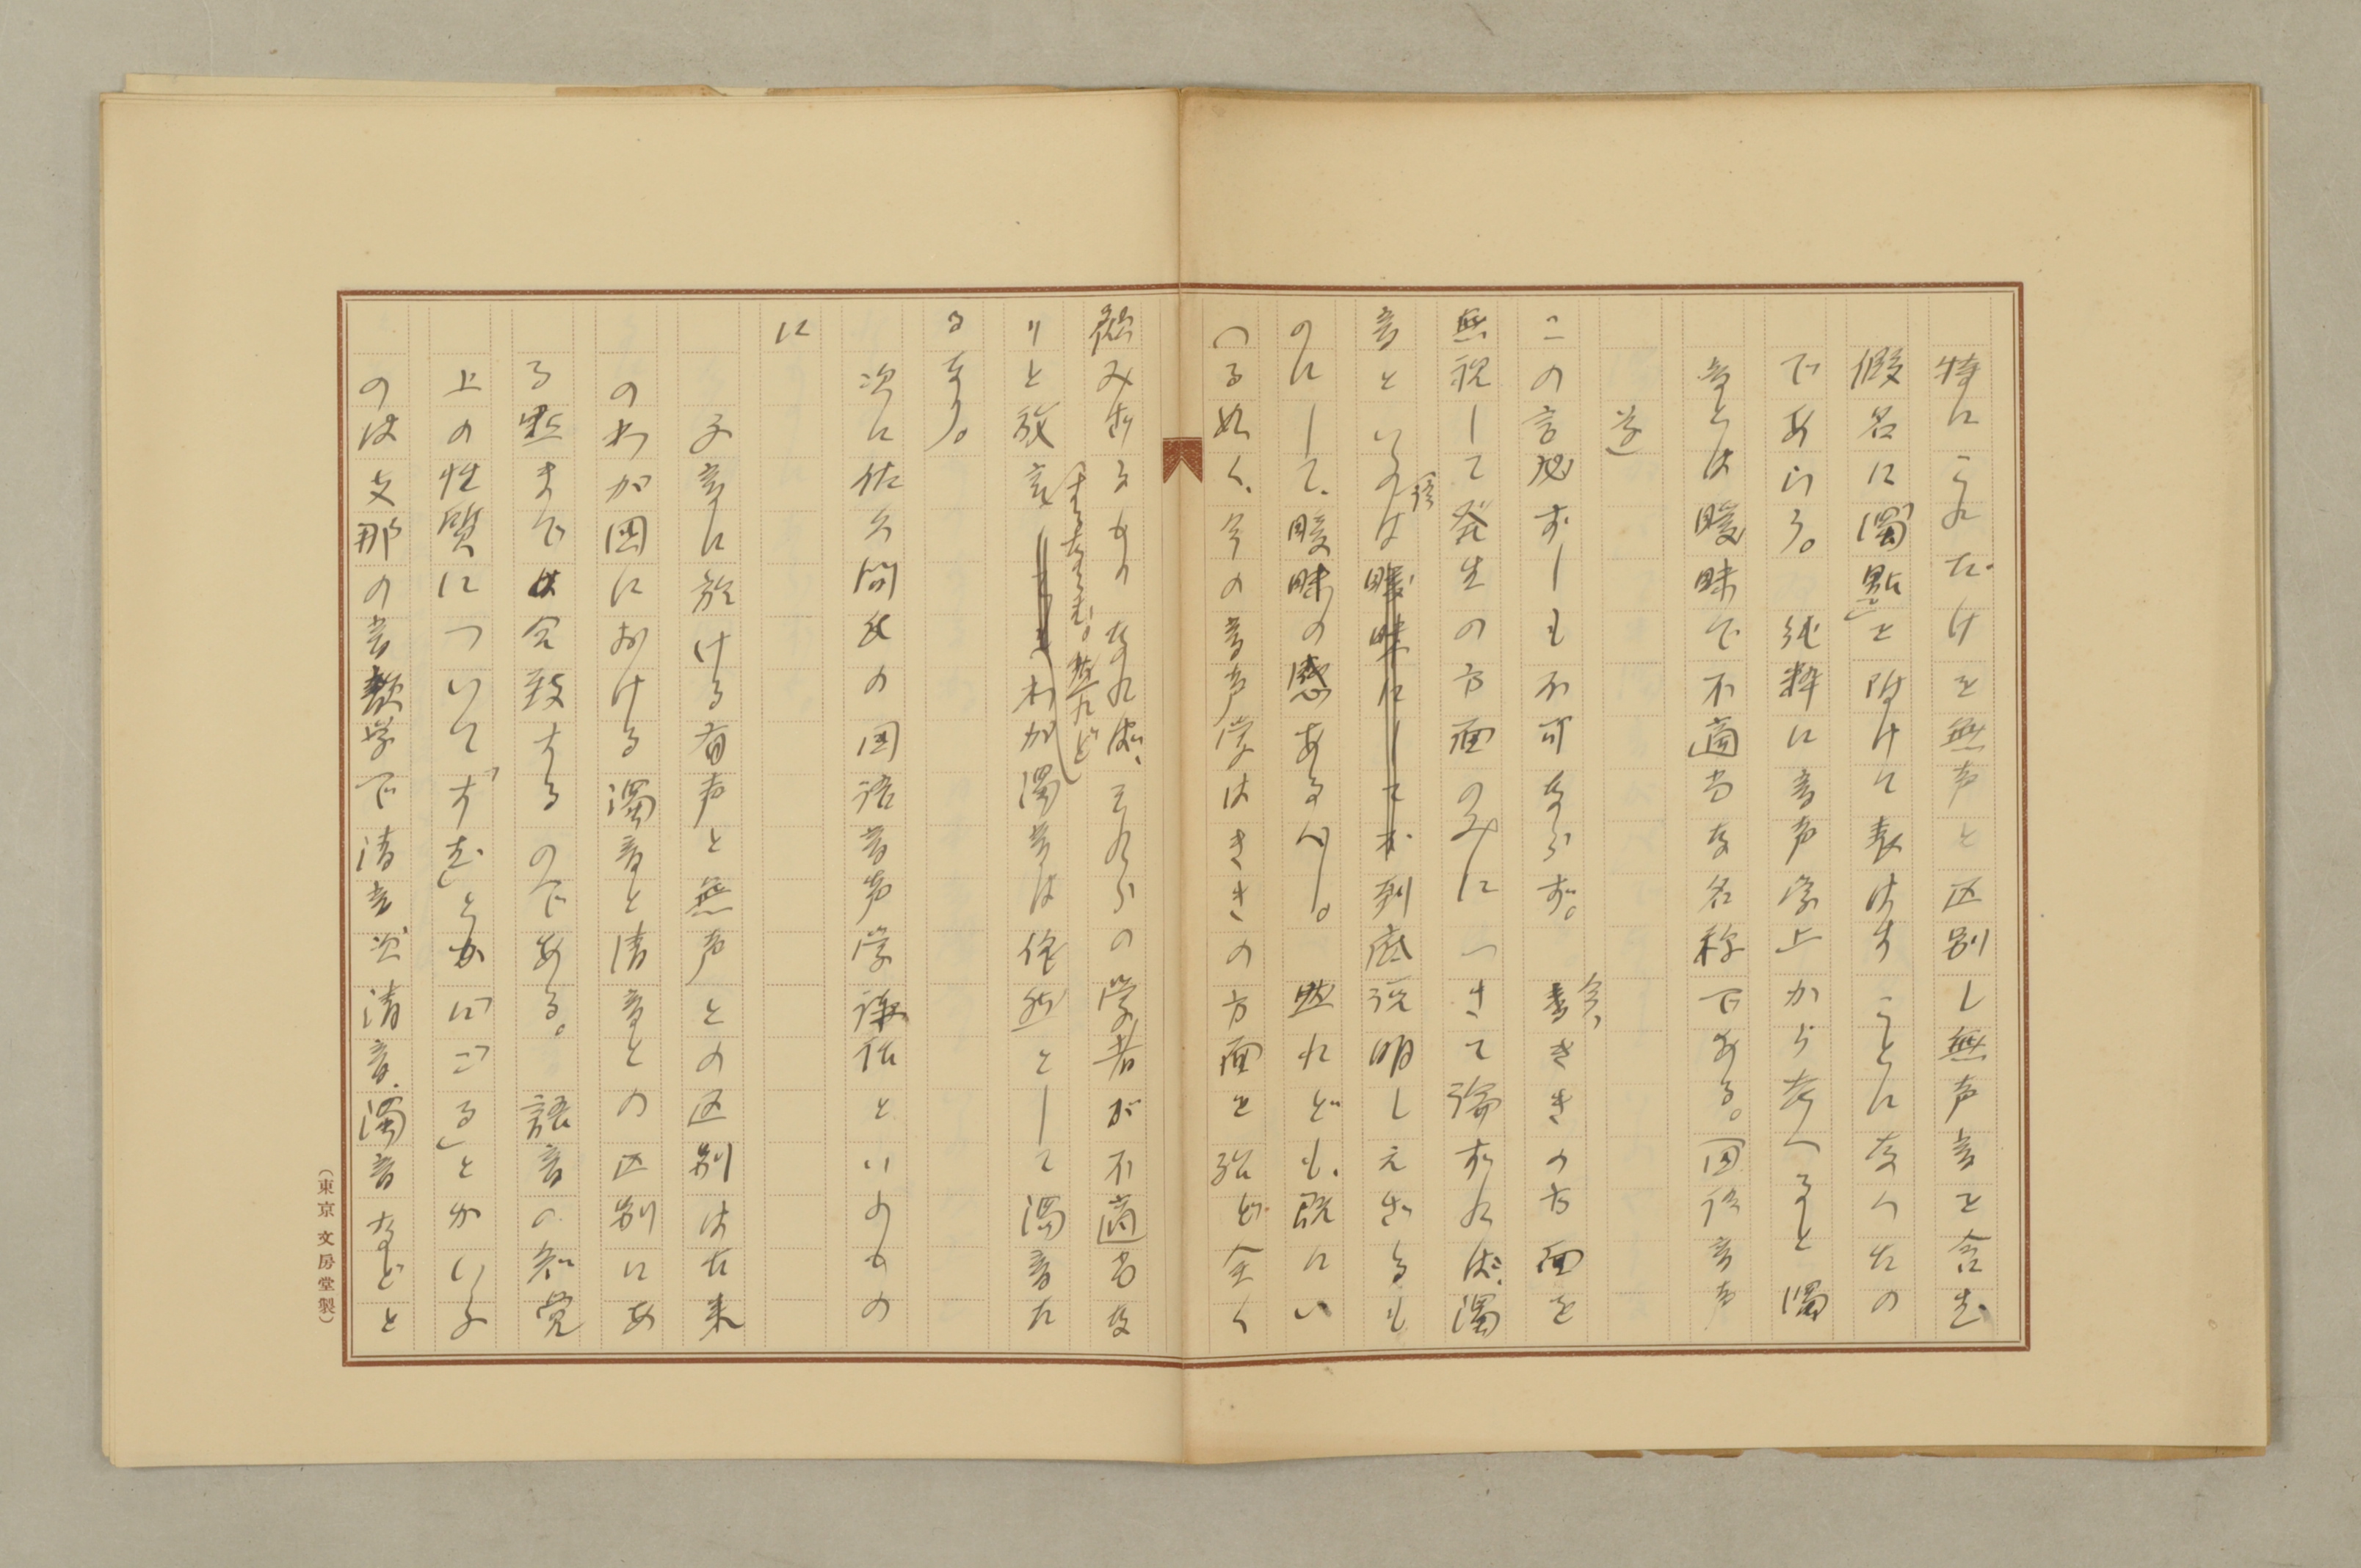 特にこれだけを無声と区別し無声音を含む
假名に「濁點」を附けて表はすことになつたの
であらう。純粹に音声学上から考へると濁
音とは曖昧で不適当な名称である。国語音声
学」
この言必ずしも不可ならず。今、きききの方面を
無視して発生の方面のみにつきて論ずれば、濁
音といふ語は到底説明しえざるも
のにして、曖昧の感あるべし。然れども、既にい
へる如く、今の音声学はききの方面を殆ど全く
顧みざるものなれば、それらの学者が不適当な
りと放言するならむ。然れどわが濁音は依然として濁音た
るなり。
次に佐久間氏の国語音声学講話といふもの
に
子音に於ける有声と無声との区別は古来
のわが国における濁音と清音との区別にあ
る點までは合致するのである。語音の知覚
上の性質について「すむ」とか「にごる」とかいふ
のは支那の音韻学で清音、次清音、濁音などと
（東京 文房堂製）